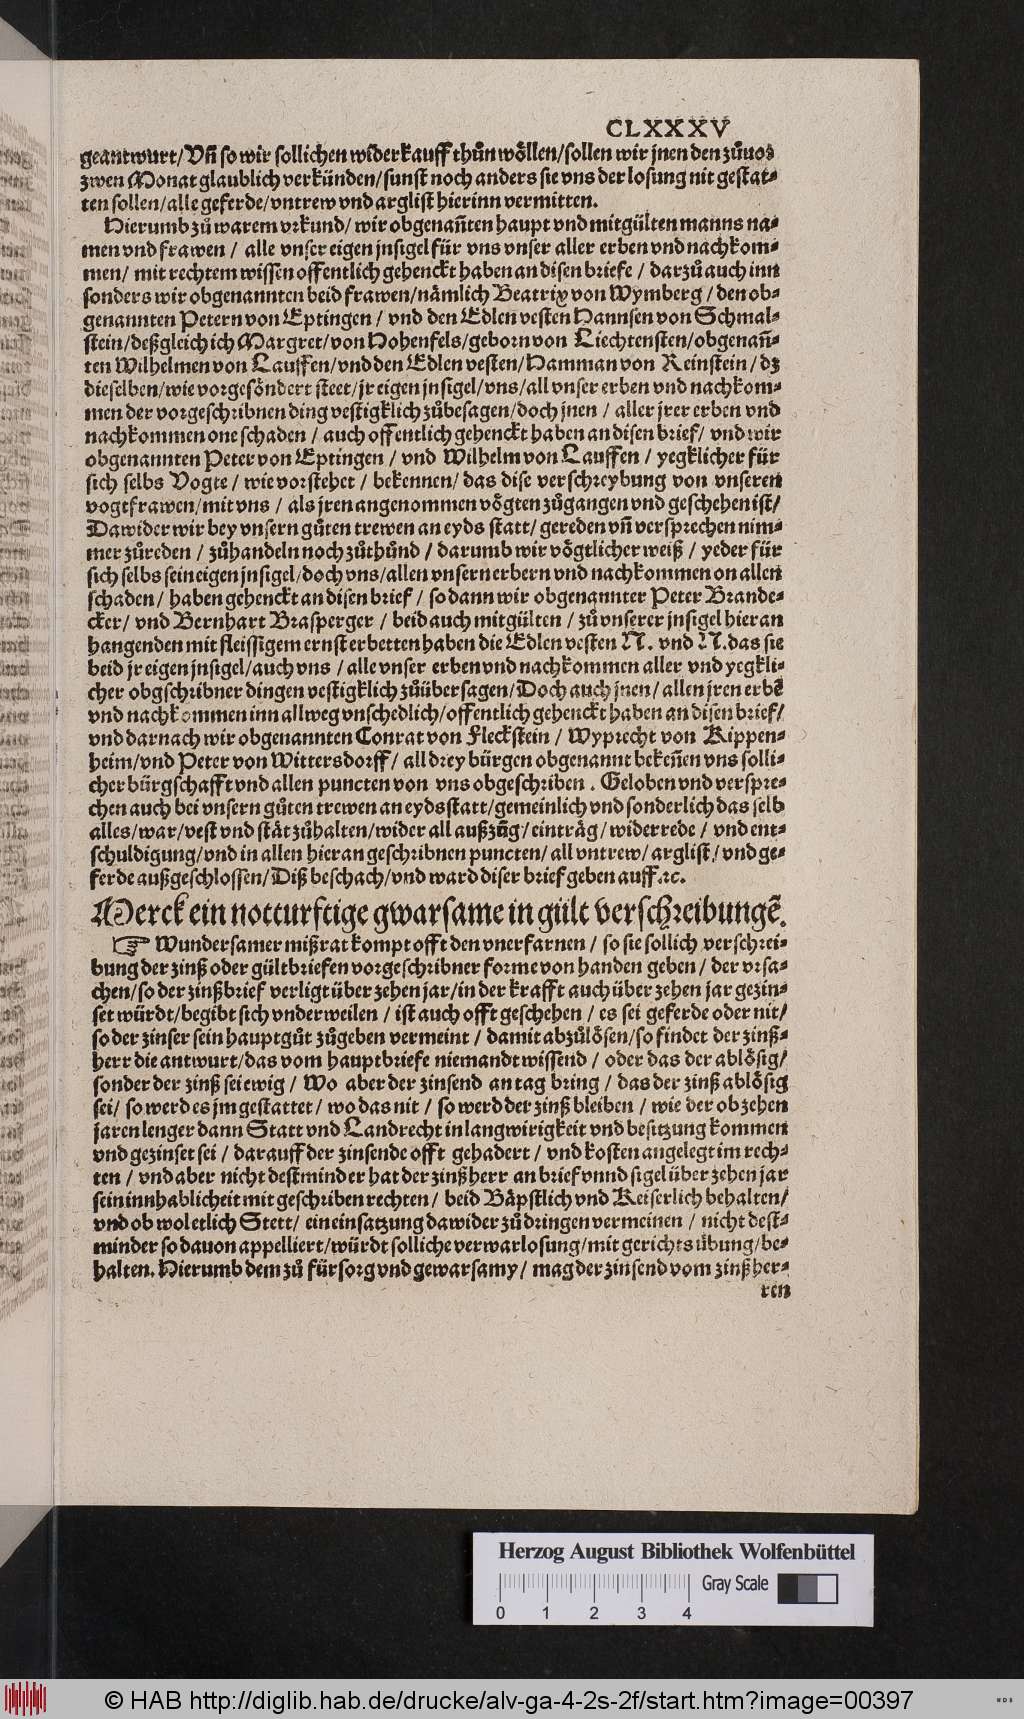 CLXXXV
geantwurt/ Vñ so wir sollichen widerkauff thůn wöllen/ sollen wir jnen den zůuor
zwen Monat glaublich verkünden/ sunst noch anders sie vns der losung nit gestat-
ten sollen/ alle geferde/ vntrew vnd arglist hierinn vermitten.
Hierumb zů warem vrkund/ wir obgenañten haupt vnd mitgülten manns na-
men vnd frawen / alle vnser eigen jnsigel für vns vnser aller erben vnd nachkom-
men/ mit rechtem wissen offentlich gehenckt haben an disen briefe / darzů auch inn
sonders wir obgenannten beid frawen/ nämlich Beatrix von Wymberg / den ob-
genannten Petern von Eptingen / vnd den Edlen vesten Hannsen von Schmal-
stein/ deßgleich ich Margret/ von Hohenfels/ geborn von Liechtensten/ obgenañ-
ten Wilhelmen von Lauffen/ vnd den Edlen vesten/ Hamman von Reinstein / dz
dieselben/ wie vorgesöndert steet/ jr eigen jnsigel/ vns/ all vnser erben vnd nachkom-
men der vorgeschribnen ding vestigklich zůbesagen/ doch jnen / aller jrer erben vnd
nachkommen one schaden / auch offentlich gehenckt haben an disen brief/ vnd wir
obgenannten Peter von Eptingen / vnd Wilhelm von Lauffen / yegklicher für
sich selbs Vogte / wie vorsteher / bekennen/ das dise verschreybung von vnseren
vogtfrawen/ mit vns / als jren angenommen vögten zůgangen vnd geschehen ist/
Dawider wir bey vnsern gůten trewen an eyds statt/ gereden vñ versprechen nim-
mer zůreden / zůhandeln noch zůthůnd / darumb wir vögtlicher weiß / yeder für
sich selbs sein eigen jnsigel/ doch vns/ allen vnsern erbern vnd nachkommen on allen
schaden/ haben gehenckt an disen brief / so dann wir obgenannter Peter Brande-
cker/ vnd Bernhart Brasperger / beid auch mitgülten / zů vnserer jnsigel hieran
hangenden mit fleissigem ernst erbetten haben die Edlen vesten N. vnd N. das sie
beid jr eigen jnsigel/ auch vns / alle vnser erben vnd nachkommen aller vnd yegkli-
cher obgschribner dingen vestigklich zůübersagen/ Doch auch jnen/ allen jren erbē
vnd nachkommen inn allweg vnschedlich/ offentlich gehenckt haben an disen brief/
vnd darnach wir obgenannten Conrat von Fleckstein / Wyprecht von Rippen-
heim/ vnd Peter von Wittersdorff / all drey bürgen obgenannt bekeñen vns solli-
cher bürgschafft vnd allen puncten von vns obgeschriben . Geloben vnd verspre-
chen auch bei vnsern gůten trewen an eydsstatt/ gemeinlich vnd sonderlich das selb
alles/ war/ vest vnd stät zůhalten/ wider all außzüg/ einträg/ widerrede / vnd ent-
schuldigung/ vnd in allen hieran geschribnen puncten/ all vntrew/ arglist/ vnd ge-
ferde außgeschlossen/ Diß beschach/ vnd ward diser brief geben auff.rc.
Merck ein notturftige gwarsame in gült verschreibungē.
☞ Wundersamer mißrat kompt offt den vnerfarnen / so sie sollich verschrei-
bung der zinß oder gültbriefen vorgeschribner forme von handen geben / der vrsa-
chen/ so der zinßbrief verligt über zehen jar/ in der krafft auch über zehen jar gezin-
set würdt/ begibt sich vnderweilen / ist auch offt geschehen / es sei geferde oder nit/
so der zinser sein hauptgůt zůgeben vermeint / damit abzůlösen/ so findet der zinß-
herr die antwurt/ das vom hauptbriefe niemandt wissend / oder das der ablösig/
sonder der zinß sei ewig / Wo aber der zinsend an tag bring / das der zinß ablösig
sei/ so werd es jm gestattet / wo das nit / so werd der zinß bleiben / wie der ob zehen
jaren lenger dann Statt vnd Landrecht in langwirigkeit vnd besitzung kommen
vnd gezinset sei / darauff der zinsende offt gehadert / vnd kosten angelegt im rech-
ten / vnd aber nicht destminder hat der zinßherr an brief vnnd sigel über zehen jar
sein innhablicheit mit geschriben rechten / beid Bäpstlich vnd Keiserlich behalten/
vnd ob wol etlich Stett/ ein einsatzung dawider zů dringen vermeinen / nicht dest-
minder so dauon appelliert/ würdt solliche verwarlosung/ mit gerichts übung/ be-
halten. Hierumb dem zů fürsorg vnd gewarsamy / mag der zinsend vom zinßher-
ren
Herzog August Bibliothek Wolfenbüttel
Gray Scale
0 1 2 3 4
© HAB http://diglib.hab.de/drucke/alv-ga-4-2s-2f/start.htm?image=00397